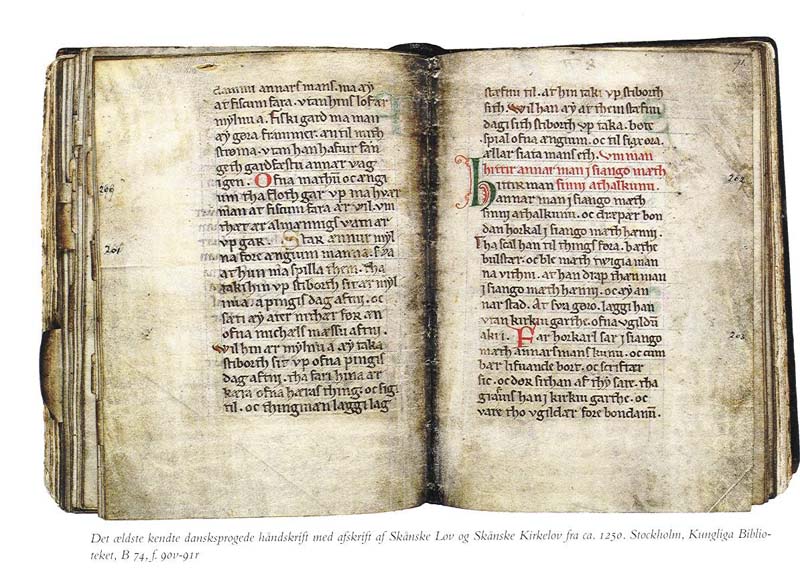 dammi annars mans. ma æy
at fiscum fara. vtan hins lof ær
mylnu a. Fiski gard ma man
æy gøra frammer. æn til mæth
strøma. vtan han hafur fan
get hgardfæstu annar vag
igen. Ofna mæthū oc ængi
um tha floth gar vp ma hwær
man at fiscum fara ær vil. vm
thæt ær almænnigs vatn ær
vp gar. Star ænnur myl
na fore ængium man a. sva
at hun ma spilla them. tha
taki hin vp stiborth sit ær myl
nu a. pingis dag aftni. oc
sæti æy ater nithær for æn
ofna michæls mæssu aftni.
Wil hin ær mylnu a æy taka
stiborth sit vp ofna pingis
dag aftni. tha fari hin ær
kæra ofna hæras thing. oc sigi
til. oc thingmæn læggi lag
206
201
91.
stæfnu til. at hin taki vp stiborth
sith. Wil han æy at them stæfnu
dagi sith stiborth vp taka. bøte
spial ofna ængium. oc til siax øra.
ællar siata mans eth. Vm man
hittir annar man i siango mæth
Hittir man sinni athalkunu.
annar man i siango mæth
sinni athalkunu. oc dræpær bon
dan horkal i siango mæth hænni.
tha scal han til things føra. bathe
bulstær. oc ble mæth twigia man
na vitni. at han drap thæn man
i siango mæth hænni. oc æy an
nar stad. Ær sva gøro. læggi han
vtan kirkiu garthe. ofna vgildū
akri. Far horkarl sar i siango
mæth annars mans kunu. oc cum
bær lifuande bort. oc scriftær
sic. oc dør sithan af thy sare. tha
grauis han i kirkiu garthe. oc
være tho vgildær fore bondanū.
202
203
Det ældste kendte dansksprogede håndskrift med afskrift af Skånske Lov og Skånske Kirkelov fra ca. 1250. Stockholm, Kungliga Biblio-
teket, B 74, f. 90v-91r